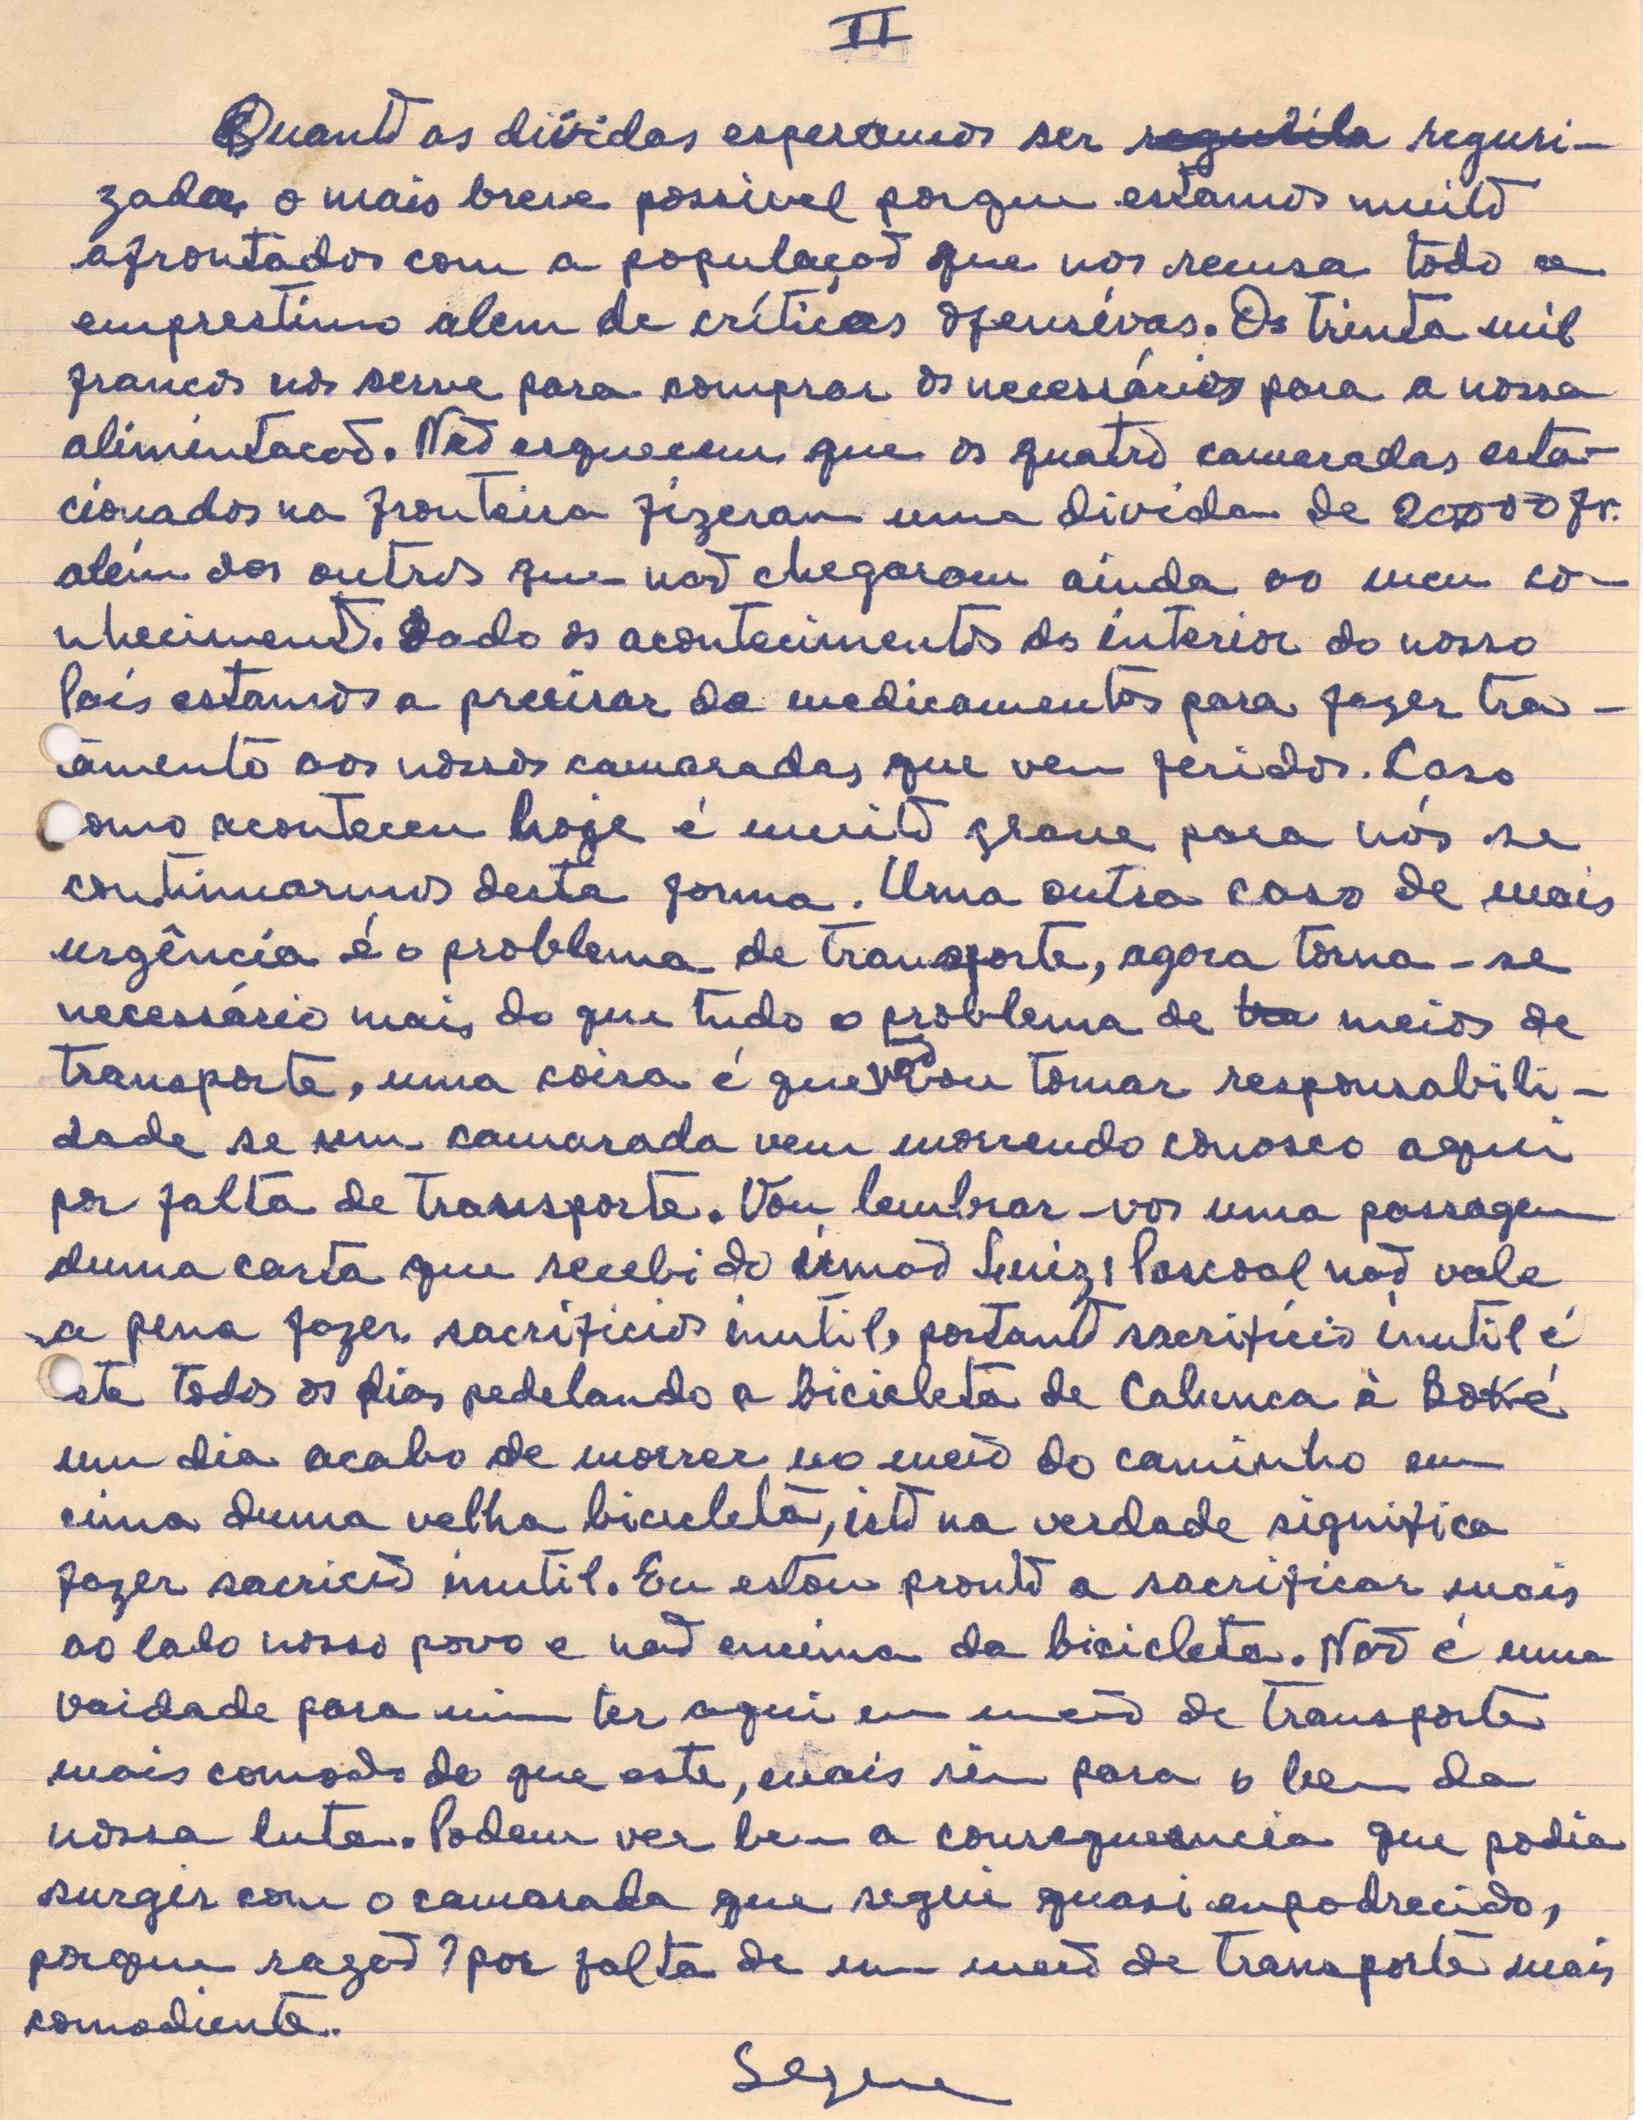 II
Quanto as dividas esperamos ser reguri-
zadas o mais breve possivel porque estamos muito
afrontados com a populaçaõ que nos recusa todo o
emprestimo alem de críticas ofensívas. Os trinta mil
francos nos serve para comprar os necessários para a nossa
alimentacaõ. Naõ esquecem que os quatro camaradas esta-
cionados na fronteira fizeram uma divida de 20000 fr.
além dos outros que naõ chegaram ainda ao meu co-
nhecimento. Dado os acontecimentos do interior do nosso
País estamos a precisar de medicamentos para fazer tra-
tamento aos nossos camaradas que vem feridos. Caso
como aconteceu hoje é muito grave para nós se
continuarmos desta forma. Uma outra caso de mais
urgência é o problema de transporte, agora torna-se
necessário mais do que tudo o problema de meios de
transporte, uma coisa é que naõ vou tomar responsabili-
dade se um camarada vem morrendo conosco aqui
por falta de transporte. Vou lembrar-vos uma passagem
duma carta que recebi do irmaõ Luiz: Pascoal naõ vale
a pena fazer sacrificios inutil, portanto sacrifício inutil é
este todos os dias pedelando a bicicleta de Cabunca à Boké
um dia acabo de morrer no meio do caminho em
cima duma velha bicicleta, isto na verdade significa
fazer sacricio inutil. Eu estou pronto a sacrificar mais
ao lado nosso povo e naõ encima da bicicleta. Naõ é uma
vaidade para mim ter aqui um meio de transporte
mais comodo do que este, mais sim para o bem da
nossa luta. Podem ver bem a consequencia que podia
surgir com o camarada que segui quasi enpodrecido,
porque razaõ? por falta de um meio de transporte mais
comodiente.
Segue